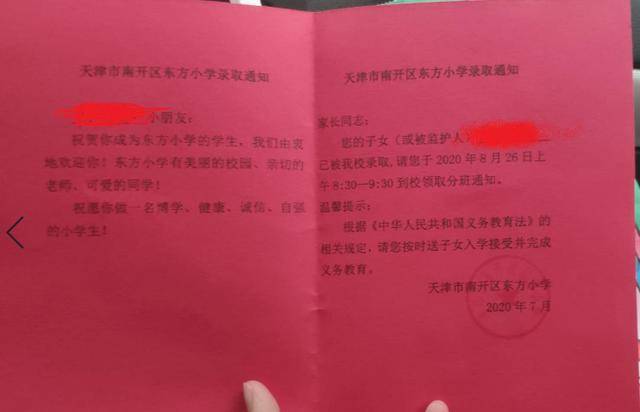 天津市南开区东方小学录取通知
小朋友:
祝贺你成为东方小学的学生，我们由衷
地欢迎你！东方小学有美丽的校园、亲切的
老师、可爱的同学！
祝愿你做一名博学、健康、诚信、自强
的小学生！
天津市南开区东方小学录取通知
家长同志:
您的子女（或被监护人
已被我校录取,请您于 2020 年 8 月 26 日上
午 8:30—9:30 到校领取分班通知。
温馨提示:
根据《中华人民共和国义务教育法》的
相关规定，请您按时送子女入学接受并完成
义务教育。
天津市南开区东方小学
2020 年 7 月